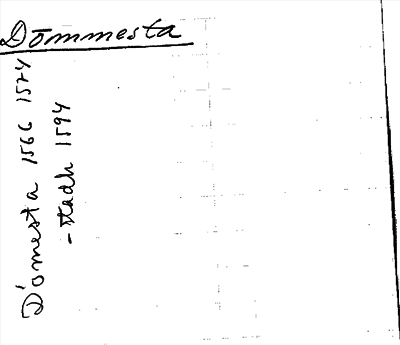 Dömmesta
Dömesta 1566 1574
-stadh 1594